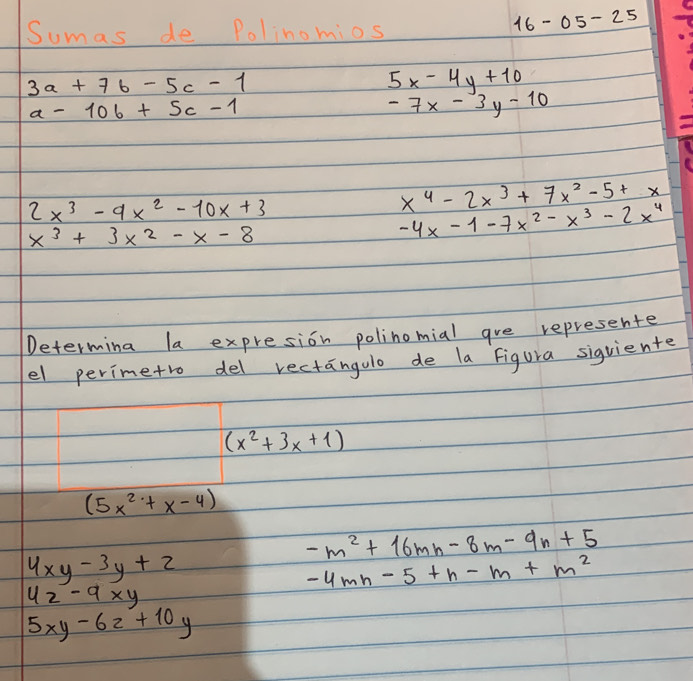 Sumas de Polinomios
16-05-25
3a + 7b - 5c - 1
a - 10b + 5c - 1
5x - 4y + 10
- 7x - 3y - 10
2x³ - 9x² - 10x + 3
x³ + 3x² - x - 8
x⁴ - 2x³ + 7x² - 5 + x
-4x - 1 - 7x² - x³ - 2x⁴
Determina la expresión polinomial que represente
el perímetro del rectángulo de la figura siguiente
(x² + 3x + 1)
(5x² + x - 4)
4xy - 3y + z
4z - 9xy
5xy - 6z + 10y
- m² + 16mn - 8m - 9n + 5
- 4mn - 5 + n - m + m²